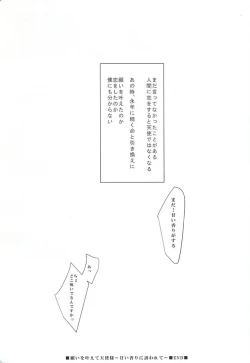 まだ言ってなかったことがある
人間に恋をすると天使ではなくなる
あの時、永年に続く命と引き換えに
願いを叶えたのか
恋をしたのか
僕にも分からない
まだ!甘い香りがする
ちょっ
どこ嗅いでるんですか
■願いを叶えて天使様～甘い香りに誘われて～■END■